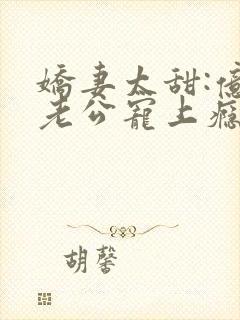 嬌妻太甜:億
老公寵上癮
胡馨